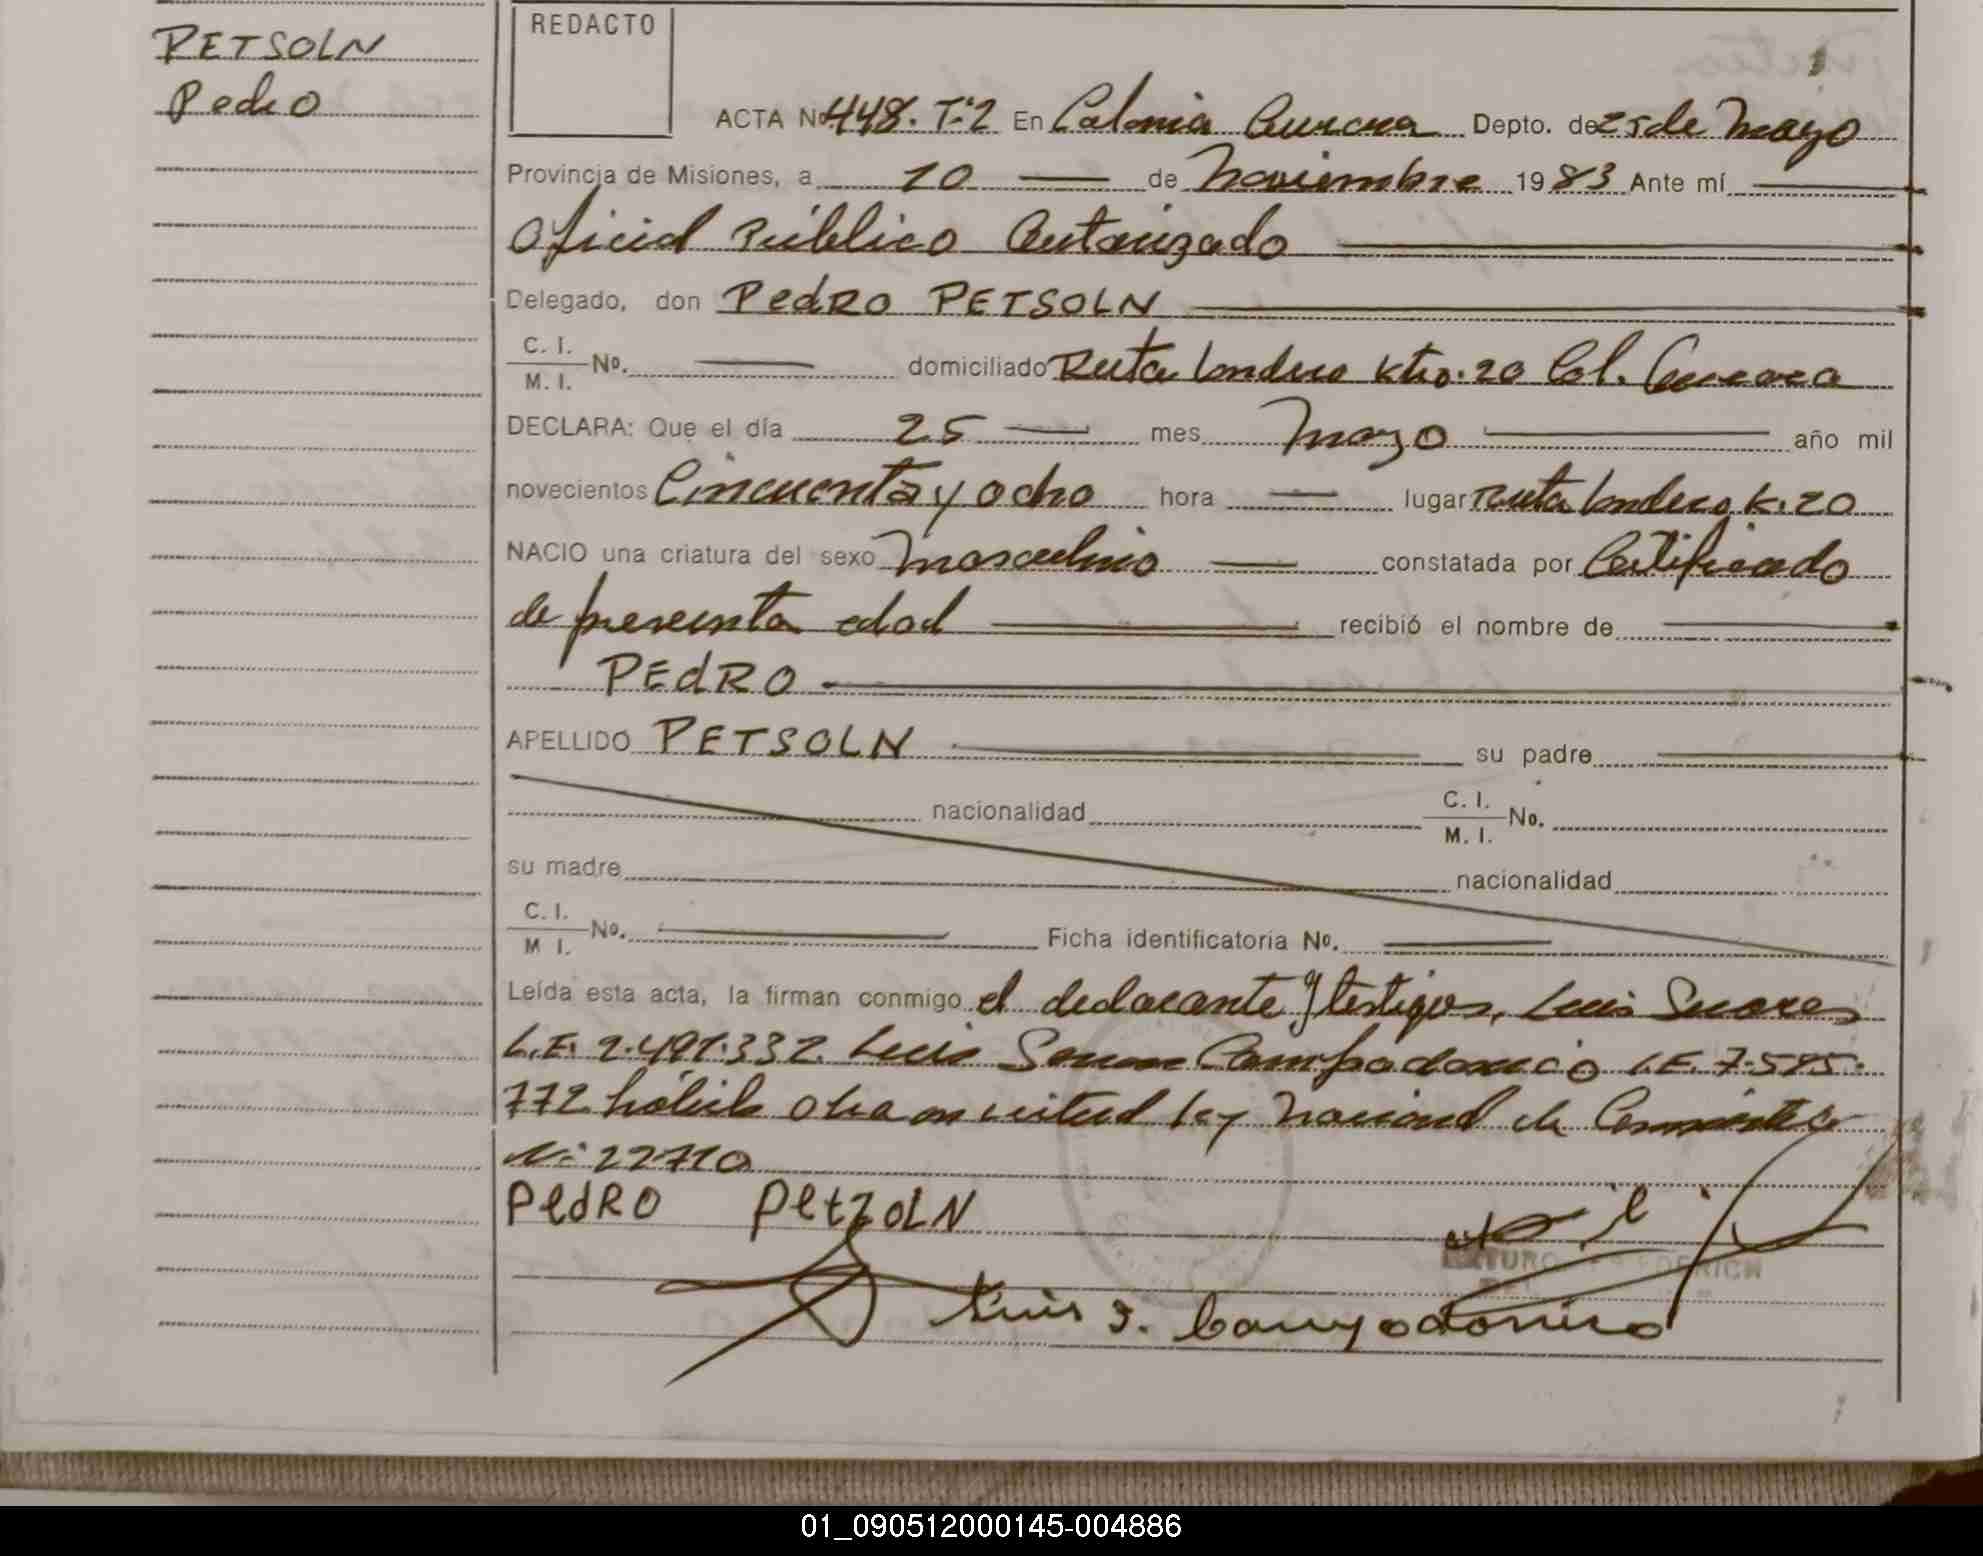 PETSOLN
Pedro
REDACTO
ACTA Nº 448. T:2 En Colonia Aurora Depto. de 25 de Mayo
Provincia de Misiones, a 10 de Noviembre 1983 Ante mí
Oficial Público Autorizado
Delegado, don PedRO PETSOLN
C. I.
M. I. Nº. domiciliado Ruta Kto. 20 Col. Aurora
DECLARA: Que el día 25 mes Mayo año mil
novecientos Cincuenta y ocho hora lugar Ruta K. 20
NACIO una criatura del sexo Masculino constatada por Certificado
de presunta edad recibió el nombre de
PEdRO
APELLIDO PETSOLN su padre
nacionalidad C. I.
M. I. Nº.
su madre nacionalidad
C. I.
M I. Nº. Ficha identificatoria Nº.
Leída esta acta, la firman conmigo el declarante y testigos, Luis Suares
L.E. 2.491.332. Luis Campodonico L.E. 7.585.
772 en virtud ley Nacional de
Nº 22710
PedRO PetzOLN
Luis S. Campodonico
01_090512000145-004886